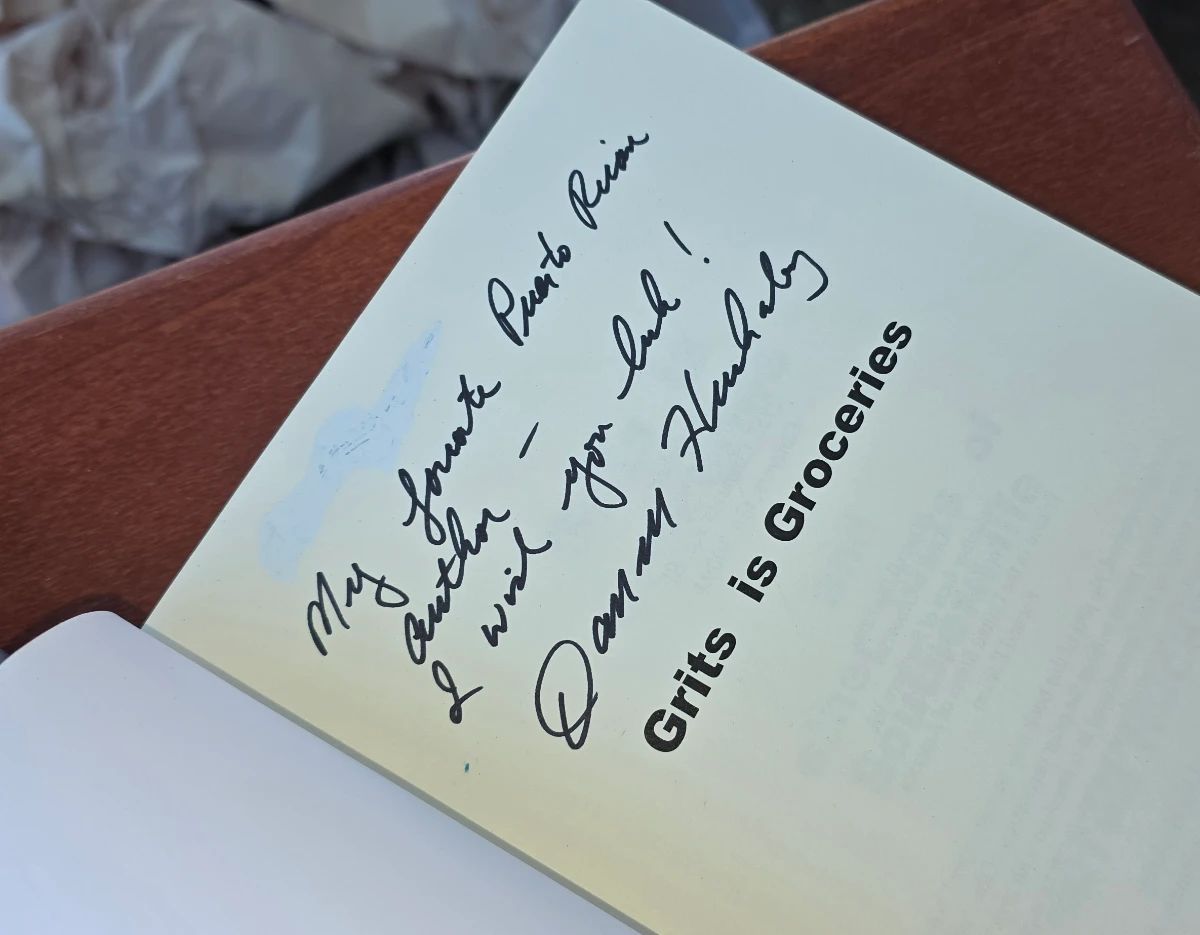 My favorite Puerto Rican
author –
I wish you luck!
Darrell Huckaby
Grits is Groceries